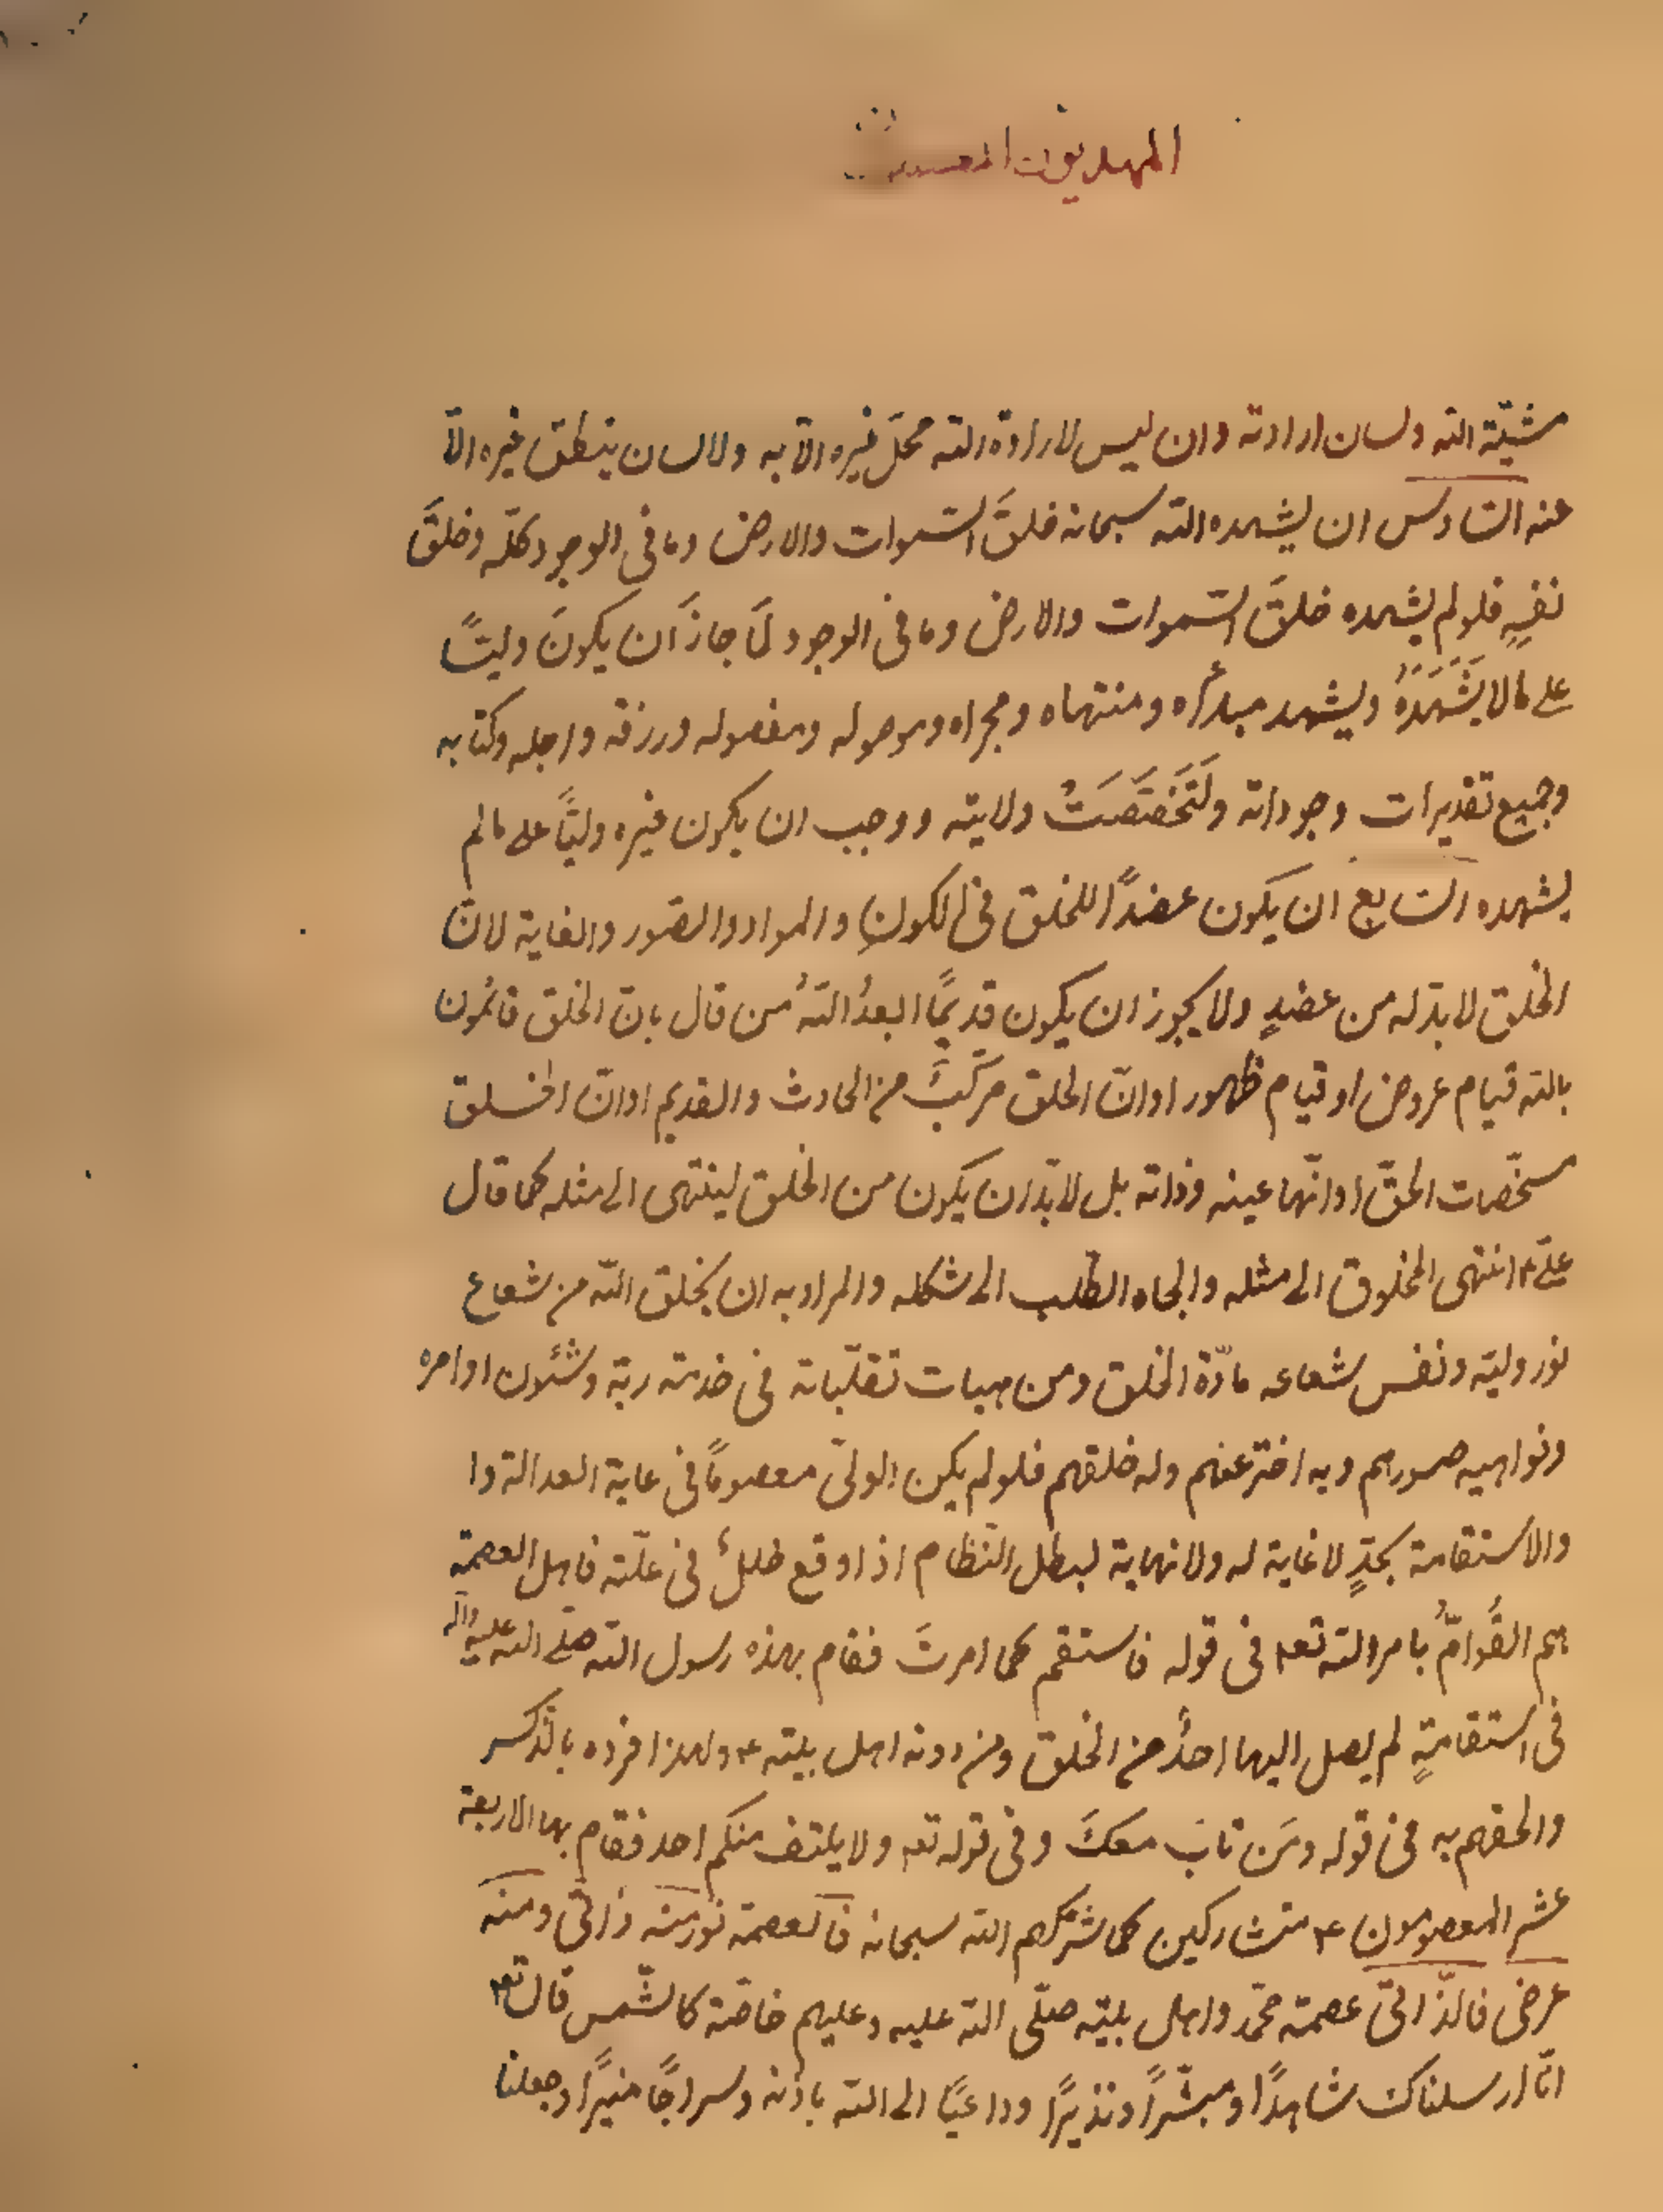 المهديون
مشيّة الله ولسان ارادته وان ليس لارادة الله محلّ غيره الّا به ولا لسان ينطق غيره الّا
عنه السّادس ان يشهده الله سبحانه خلقَ السّموات والارض وما فى الوجود كلّه وخلقَ
نفسِهِ فلو لم يشهده خلقَ السّموات والارض وما فى الوجود لمَا جازَ اَن يكونَ وليّاً
على مالا يَشْهَدَهُ ويشهد مبدأه ومنتهاه ومجراه وموصوله ومفصوله ورزقه واجله وكتابه
وجميع تقديرات وجوداته ولَتَخَصَّصَتْ ولايته ووجب ان يكون غيره وليّاً على مالم
يشهده السّابع ان يكون عضداً للخلق فى الكونِ والمواد والصّور والغاية لانّ
الخلق لا بدّ له من عضدٍ ولا يجوز ان يكون قديماً ابعدُ اللهُ من قال بانّ الخلق قائمُون
بالله قيام عروض او قيام ظهور او انّ الخلق مركّبٌ من الحادث والقديم او انّ الخلق
مشخّصات الحقّ او انّها عينه وذاته بل لا بدّ ان يكون من الخلق لينتهى الى مثله كما قال
علىّ ع انتهى المخلوق الى مثله والجاه الطّلب الى شكله والمراد به ان يخلق الله من شعاع
نور وليّه ونفس شعاعه مادّة الخلق ومن هيبات تقلّباته فى خدمة ربّه وشئون اوامره
ونواهيه صورهم وبه اخترعهم وله خلقهم فلو لم يكن الولىّ معصوماً فى غاية العدالة وا
والاستقامة بحدٍّ لا غاية له ولا نهاية لبطل النّظام اذا وقع خللٌ فى علّته فاهل العصمة
هم القُوّامُ بامر الله تعه فى قوله فاستقم كما امرتَ فقام بهذه رسول الله صلّى الله عليه وآله
فى استقامةٍ لم يصل اليها احدٌ من الخلق ومن دونه اهل بيته ع ولهذا افرده بالذّكر
والحقهم به فى قوله ومَن تابَ معكَ وفى قوله تعه ولا يلتفت منكم احد فقام بها الاربعة
عشر المعصومون ع متشاركين كما شرّكهم الله سبحانه فالعصمة نور منه ذاتى ومنه
عرضى فالذّاتىّ عصمة محمّد واهل بيته صلّى الله عليه وعليهم خاصّة كالشّمس قال تعه
انّا ارسلناك شاهداً ومبشّراً ونذيراً وداعياً الى الله باذنه وسراجاً منيراً وجعلنا